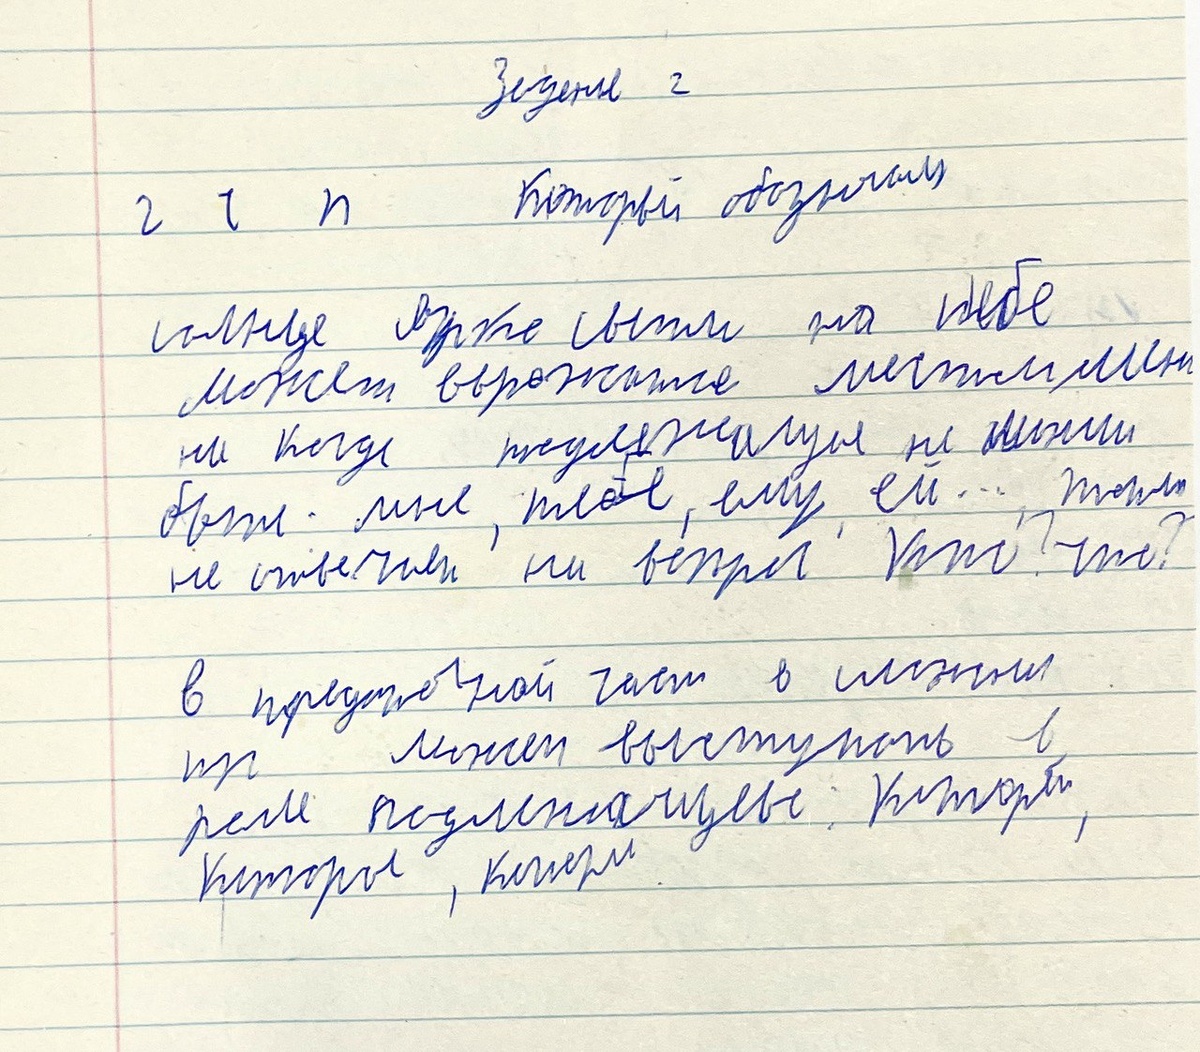 Задание 2
2 ч п Который обозначал
солнце ярко на небе
может выражатся местоимени
ни когда подлежащуя не
быт. мне, тебе, ему, ей...,
не отвечали на вопрос Кто? что?
в придаточной част в сложном
пр может выступать в
роле подлежащее: Который,
Которое, которы